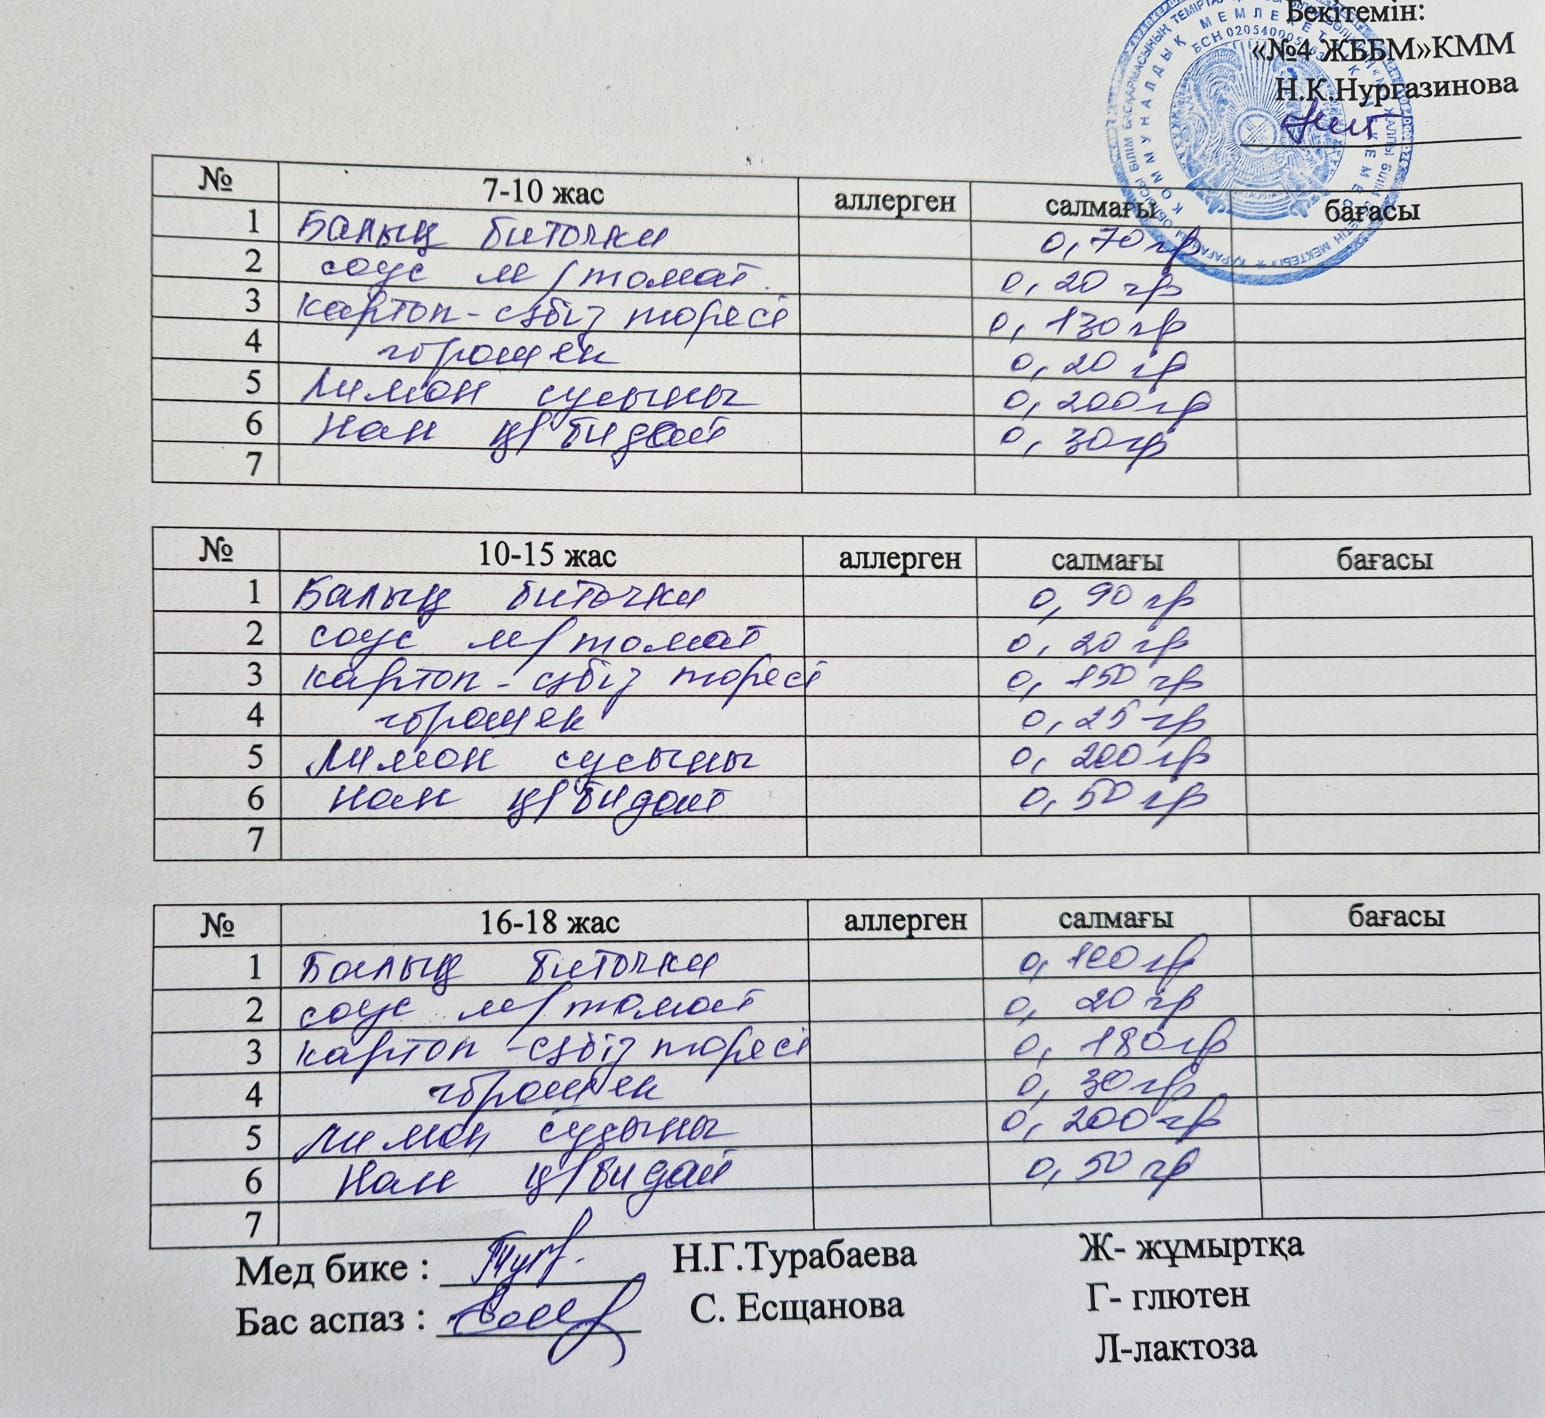 Бекітемін:
«№4 ЖББМ»КММ
Н.К.Нургазинова
БСН 020540005
№ 7-10 жас аллерген салмағы бағасы
1 Балық биточки 0,70 гр
2 соус м/томат 0,20 гр
3 картоп-сәбіз пюресі 0,130 гр
4 горошек 0,20 гр
5 Лимон сусыны 0,200 гр
6 Нан қ/бидай 0,30 гр
7
№ 10-15 жас аллерген салмағы бағасы
1 Балық биточки 0,90 гр
2 соус м/томат 0,20 гр
3 картоп-сәбіз пюресі 0,150 гр
4 горошек 0,25 гр
5 Лимон сусыны 0,200 гр
6 Нан қ/бидай 0,50 гр
7
№ 16-18 жас аллерген салмағы бағасы
1 Балық биточки 0,100 гр
2 соус м/томат 0,20 гр
3 картоп-сәбіз пюресі 0,180 гр
4 горошек 0,30 гр
5 лимон сусыны 0,200 гр
6 Нан қ/бидай 0,50 гр
7
Мед бике : Н.Г.Турабаева Ж- жұмыртқа
Бас аспаз : С. Есщанова Г- глютен
Л-лактоза